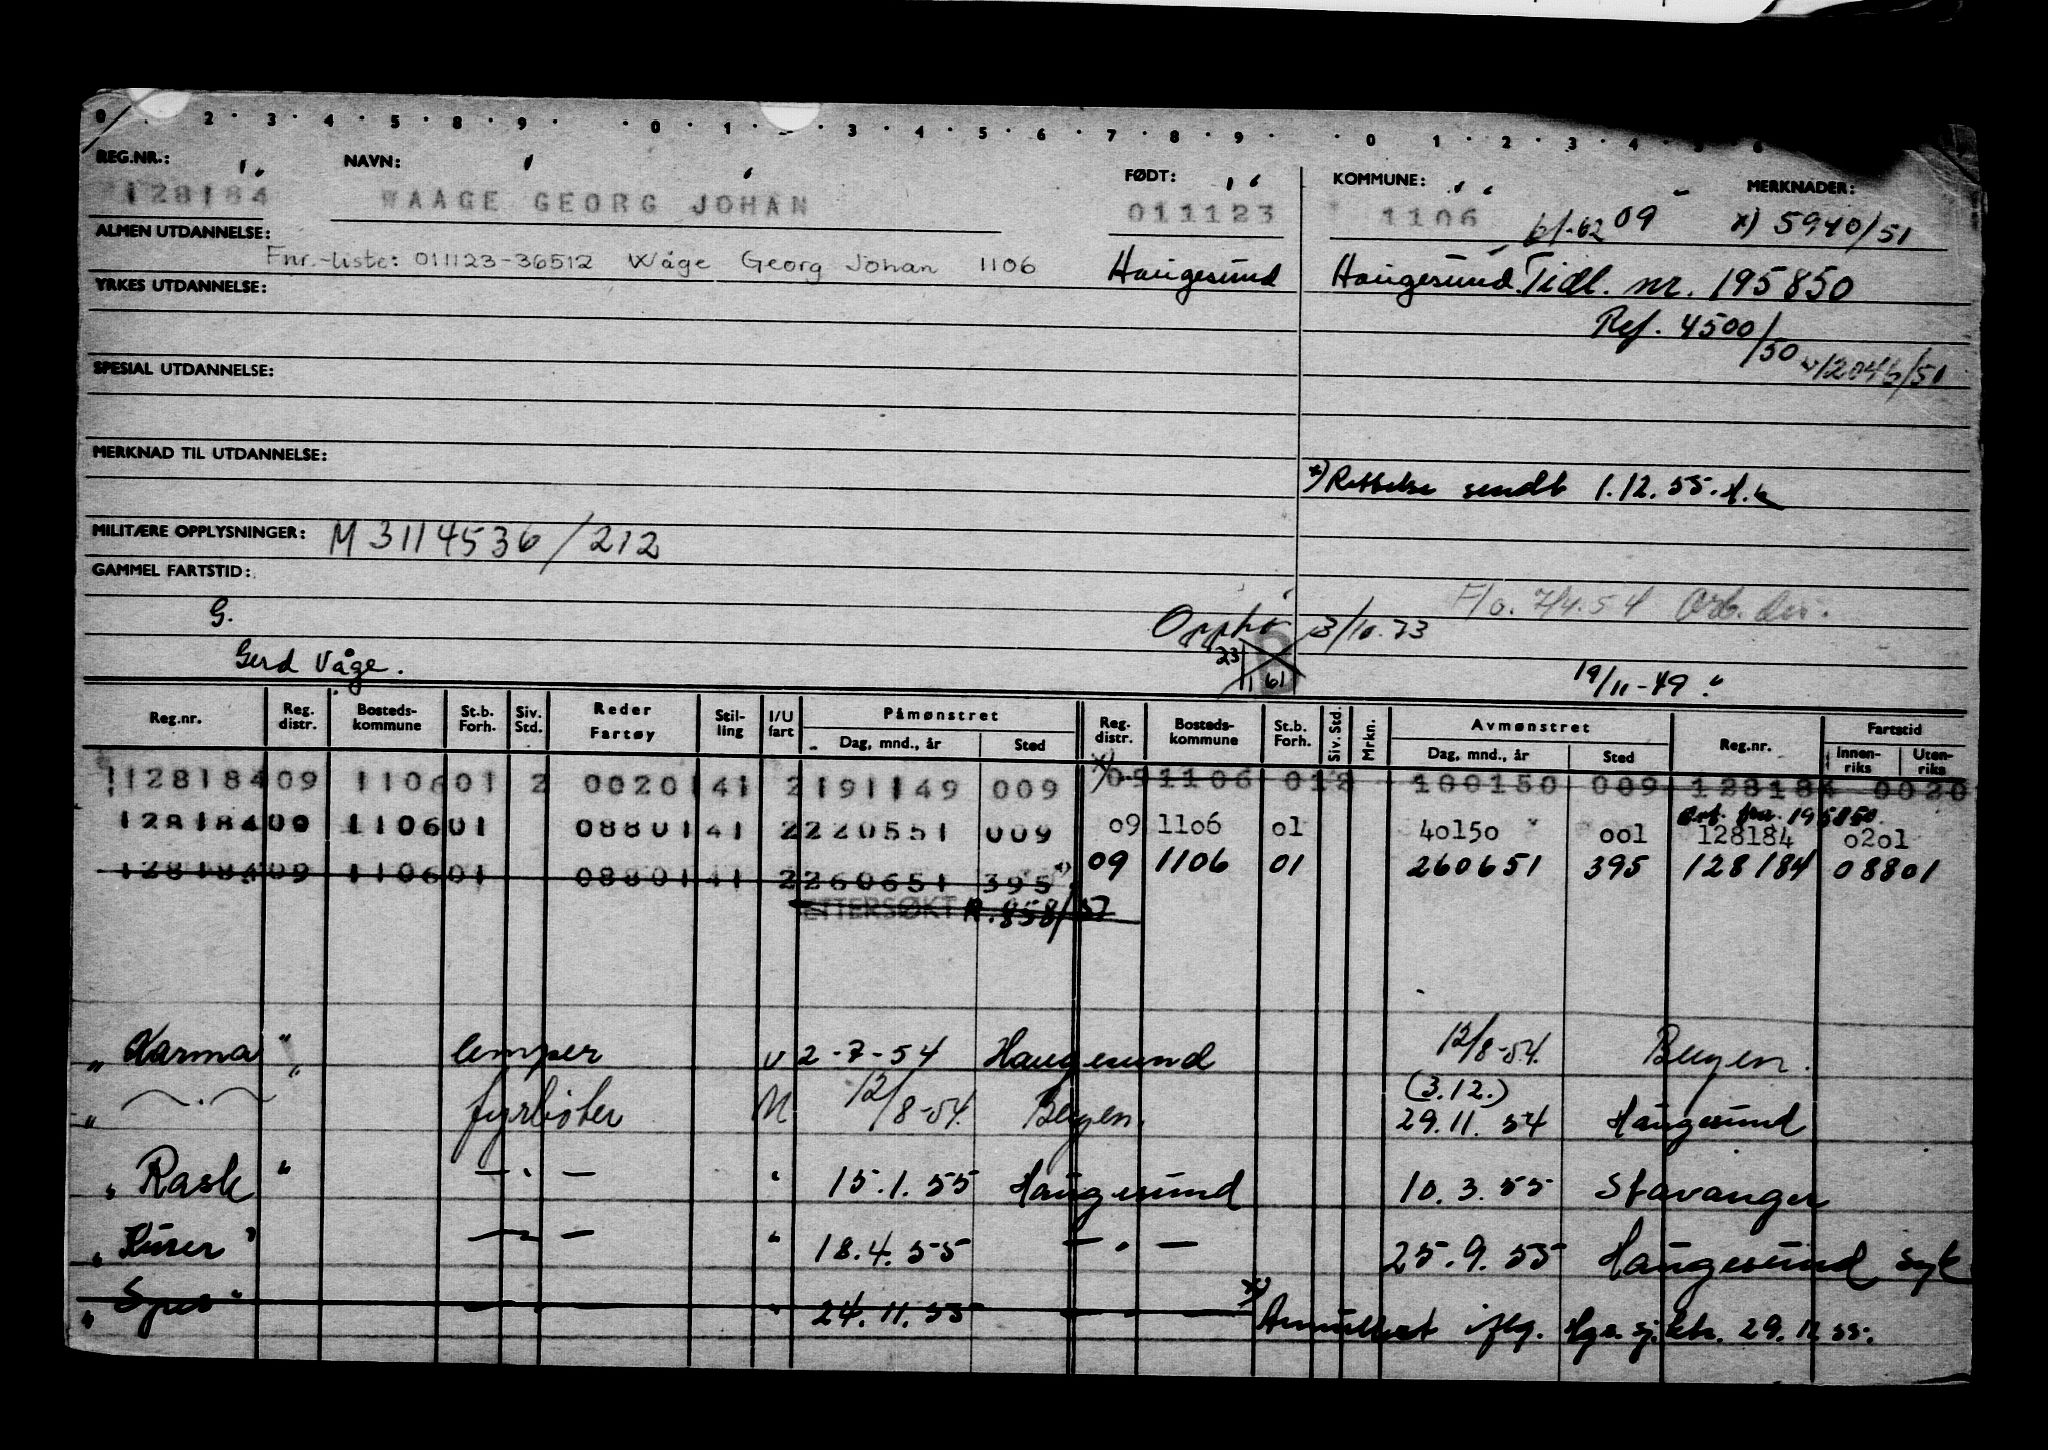 0 · 2 · 3 · 4 · 5 · 8 · 9 · · 0 · 1 · 3 · 4 · 5 · 6 · 7 · 8 · 9 · · 0 1 · 2 · 3 · 4 · 5
REG.NR.: NAVN: FØDT: KOMMUNE: MERKNADER:
128184 WAAGE GEORG JOHAN 011123 1106 61-62 09 x) 5940/51
ALMEN UTDANNELSE:
Fnr.-liste: 011123-36512 Wåge Georg Johan 1106 Haugesund Haugesund. Tidl. nr. 195850
YRKES UTDANNELSE:
Ref. 4500/50 12046/51
SPESIAL UTDANNELSE:
MERKNAD TIL UTDANNELSE:
x) Rettelse sendt 1.12.55.
MILITÆRE OPPLYSNINGER: M 3114536/212
GAMMEL FARTSTID:
F/o. 7/4.54
G. Opphø 3/10.73
Gerd Våge. 23/1 61 19/11-49
Reg.nr. Reg. distr. Bosteds-kommune St.b. Forh. Siv. Std. Reder Fartøy Stil-ling I/U fart Påmønstret Dag, mnd., år Sted Reg. distr. Bosteds-kommune St.b. Forh. Siv. Std. Mrkn. Avmønstret Dag, mnd., år Sted Reg.nr. Fartstid Innen-riks Uten-riks
128184 09 1106 01 2 00201 41 2 191149 009 x) 09 1106 01 2 100150 009 128184 0020
128184 09 1106 01 08801 41 2 220551 009 09 1106 01 40150 001 128184 0201
195850
128184 09 1106 01 08801 41 2 260651 395 x) 09 1106 01 260651 395 128184 08801
ETTERSØKT R. 858/57
" Karma " lemper U 2-7-54 Haugesund 12/8-54. Bergen.
" — . — fyrbøter N 12/8-54. Bergen. (3.12.) 29.11.54 Haugesund
" Rask " — . — " 15.1.55 Haugesund 10.3.55 Stavanger
" Kurer " — — " 18.4.55 — . — 25.9.55 Haugesund syk
" Spes " — — " 24.11.55 — — x) Annullert iflg. Hgs. sj.ktr. 29.11.55.